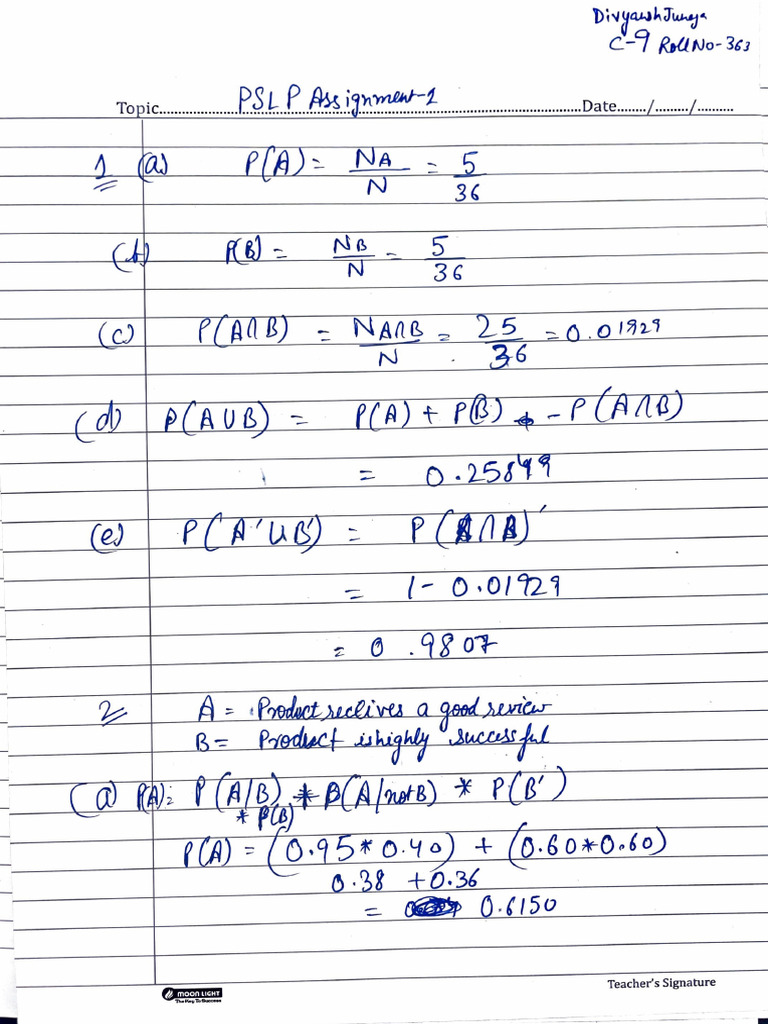 Divyansh Juneja
C-9 Roll No-363
Topic PSLP Assignment-1 Date / /
1 (a) P(A) = NA/N = 5/36
(b) P(B) = NB/N = 5/36
(c) P(A∩B) = NA∩B/N = 25/36 = 0.01929
(d) P(A∪B) = P(A) + P(B) - P(A∩B)
= 0.25849
(e) P(A'∪B') = P(A∩B)'
= 1 - 0.01929
= 0.9807
2 A = Product reclives a good review
B = Product is highly successful
(a) P(A): P(A/B) * B(A/not B) * P(B')
* P(B)
P(A) = (0.95*0.40) + (0.60*0.60)
0.38 + 0.36
= 0.6150
Teacher's Signature
MOON LIGHT
The Key To Success